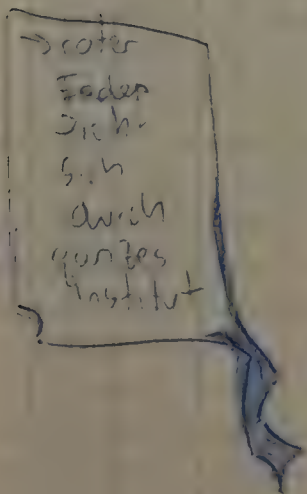 → roter
Faden
zieht
sich
durch
ganzes
Institut